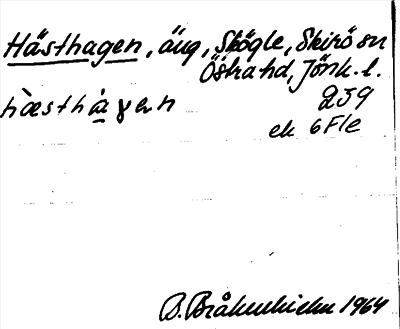 Hästhagen, äng, Skögle, Skirö sn
Östra hd, Jönk. l.
hæsthàɣen 239
ek 6F1e
B. Bråkenhielm 1964